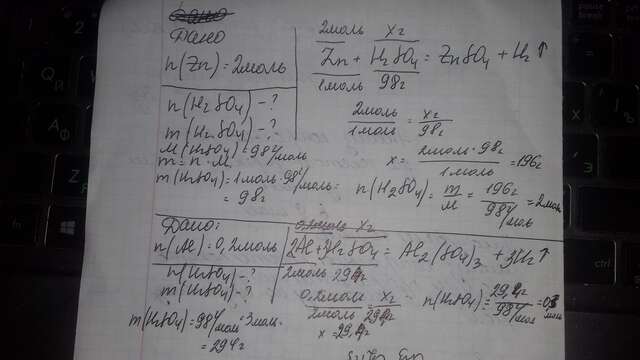 Дано
n(Zn) = 2моль
n(H2SO4) - ?
m(H2SO4) - ?
M(H2SO4) = 98 г/моль
m = n · M
m(H2SO4) = 1моль · 98 г/моль =
= 98г
2моль xг
Zn + H2SO4 = ZnSO4 + H2↑
1моль 98г
2моль/1моль = xг/98г
x = 2моль · 98г/1моль = 196г
n(H2SO4) = m/M = 196г/98 г/моль = 2моль
Дано:
n(Al) = 0,2моль
n(H2SO4) - ?
m(H2SO4) - ?
m(H2SO4) = 98 г/моль · 3моль =
= 294г
xг
2Al + 3H2SO4 = Al2(SO4)3 + 3H2↑
2моль 294г
0,2моль/2моль = xг/294г
x = 29,4г
n(H2SO4) = 29,4г/98 г/моль = 0,3 моль